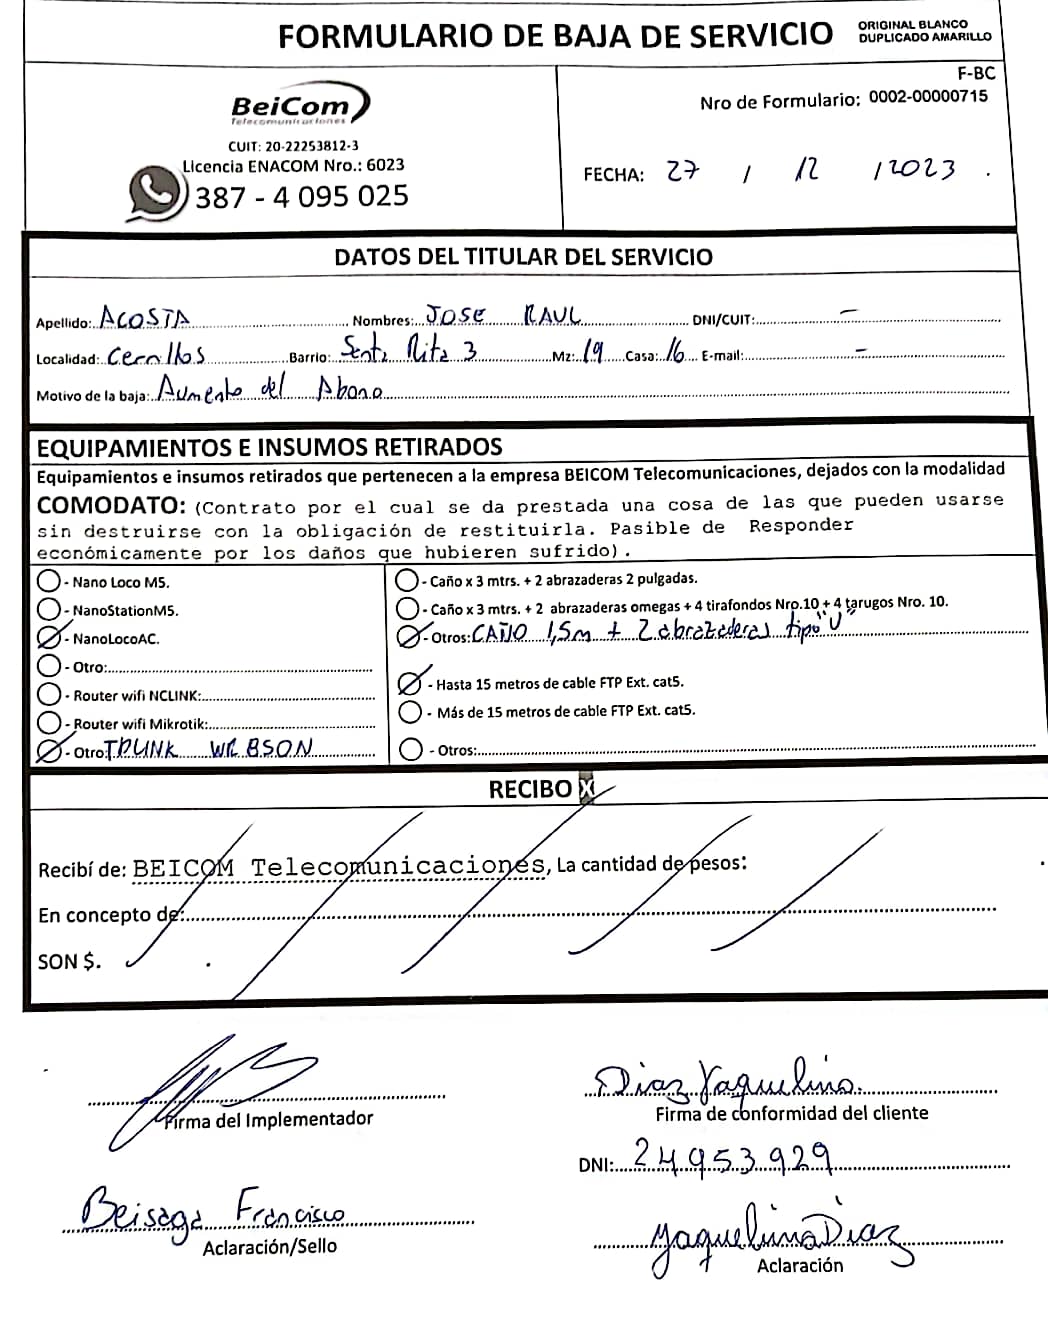 FORMULARIO DE BAJA DE SERVICIO
ORIGINAL BLANCO
DUPLICADO AMARILLO
BeiCom
Telecomunicaciones
CUIT: 20-22253812-3
Licencia ENACOM Nro.: 6023
387 - 4 095 025
F-BC
Nro de Formulario: 0002-00000715
FECHA: 27 / 12 / 2023
DATOS DEL TITULAR DEL SERVICIO
Apellido: ACOSTA Nombres: JOSE RAUL DNI/CUIT: —
Localidad: Cerrillos Barrio: Santa Rita 3 Mz: 19 Casa: 16 E-mail: —
Motivo de la baja: Aumento del Abono
EQUIPAMIENTOS E INSUMOS RETIRADOS
Equipamientos e insumos retirados que pertenecen a la empresa BEICOM Telecomunicaciones, dejados con la modalidad
COMODATO: (Contrato por el cual se da prestada una cosa de las que pueden usarse
sin destruirse con la obligación de restituirla. Pasible de Responder
económicamente por los daños que hubieren sufrido).
- Nano Loco M5.
- NanoStationM5.
- NanoLocoAC.
- Otro:
- Router wifi NCLINK:
- Router wifi Mikrotik:
- Otro: TRUNK WEBSON
- Caño x 3 mtrs. + 2 abrazaderas 2 pulgadas.
- Caño x 3 mtrs. + 2 abrazaderas omegas + 4 tirafondos Nro.10 + 4 tarugos Nro. 10.
- Otros: CAÑO 1,5m + 2 abrazaderas tipo "U"
- Hasta 15 metros de cable FTP Ext. cat5.
- Más de 15 metros de cable FTP Ext. cat5.
- Otros:
RECIBO X
Recibí de: BEICOM Telecomunicaciones, La cantidad de pesos:
En concepto de:
SON $.
Firma del Implementador
Beisaga Francisco
Aclaración/Sello
Diaz Yaquelina.
Firma de conformidad del cliente
DNI: 24953929
Yaquelina Diaz
Aclaración